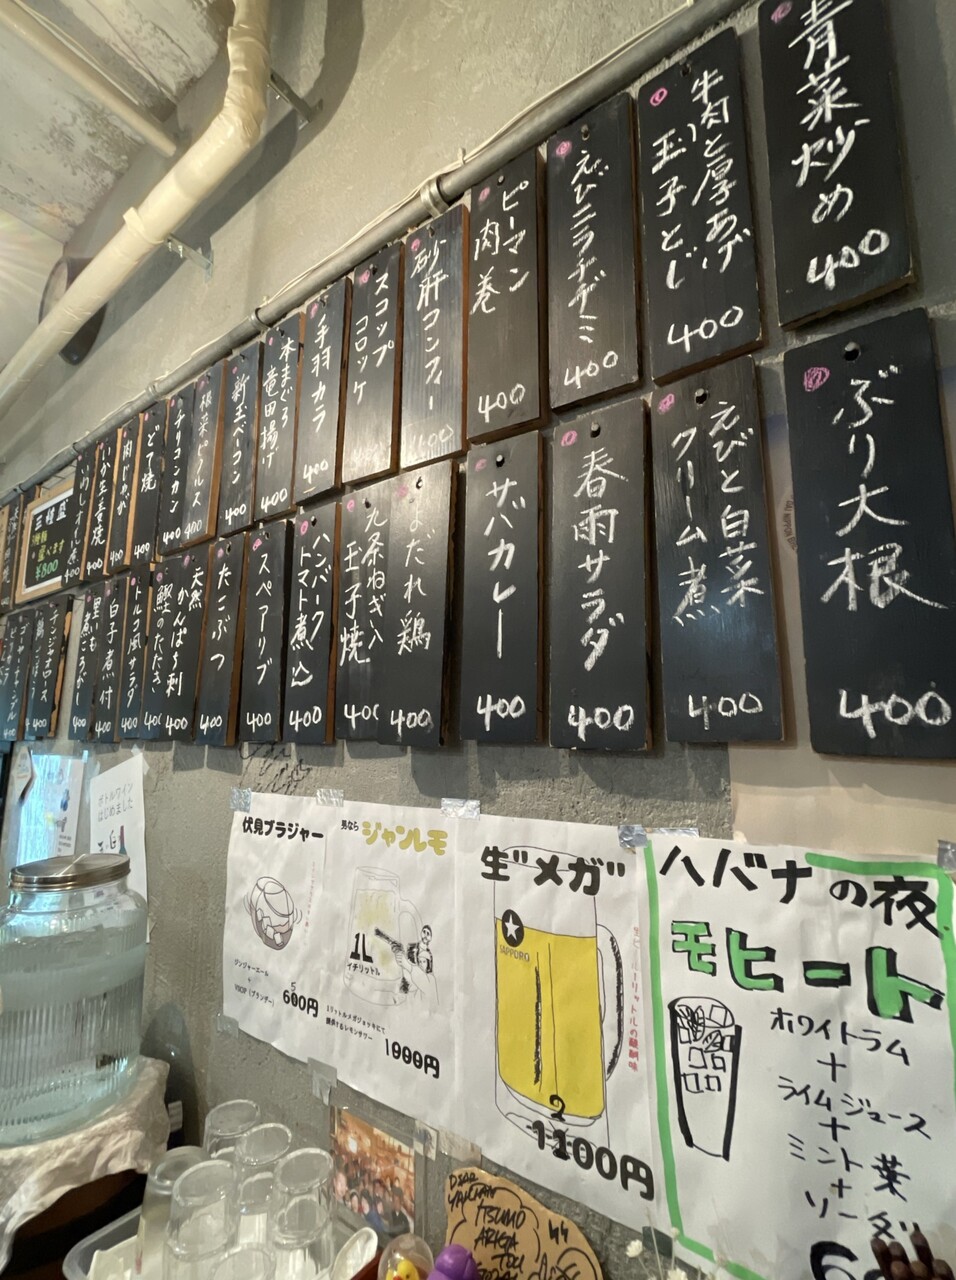 青菜炒め
400
牛肉と厚あげ
玉子とじ
400
えびニラチヂミ
400
ピーマン
肉巻
400
砂肝コンフィー
400
スコップ
コロッケ
手羽カラ
400
本まぐろ
竜田揚げ
400
新玉ベーコン
400
根菜ピクルス
400
チリコンカン
400
どて焼
400
肉じゃが
400
いか生姜焼
400
400
三種盛
選べます
¥800
ぶり大根
400
えびと白菜
クリーム煮
400
春雨サラダ
400
サバカレー
400
よだれ鶏
400
九条ねぎ入
玉子焼
400
ハンバーグ
トマト煮込
400
スペアリブ
400
たこぶつ
400
天然
かんぱち刺
400
鰹のたたき
400
トルコ風サラダ
400
白子煮付
400
里いも
煮ころがし
400
チンジャオロース
400
ボトルワイン
はじめました
伏見ブラジャー
ジンジャーエール
+
VSOP(ブランデー)
600円
5
男なら
ジャンレモ
1L
イチリットル
1リットルメガジョッキにて
1000円
生"メガ"
SAPPORO
生ビール1リットルの醍醐味
2
1100円
ハバナの夜
モヒート
ホワイトラム
+
ライムジュース
+
ミント葉
+
ソーダ
6
DEAR
ITSUMO
ARIGA
TOU